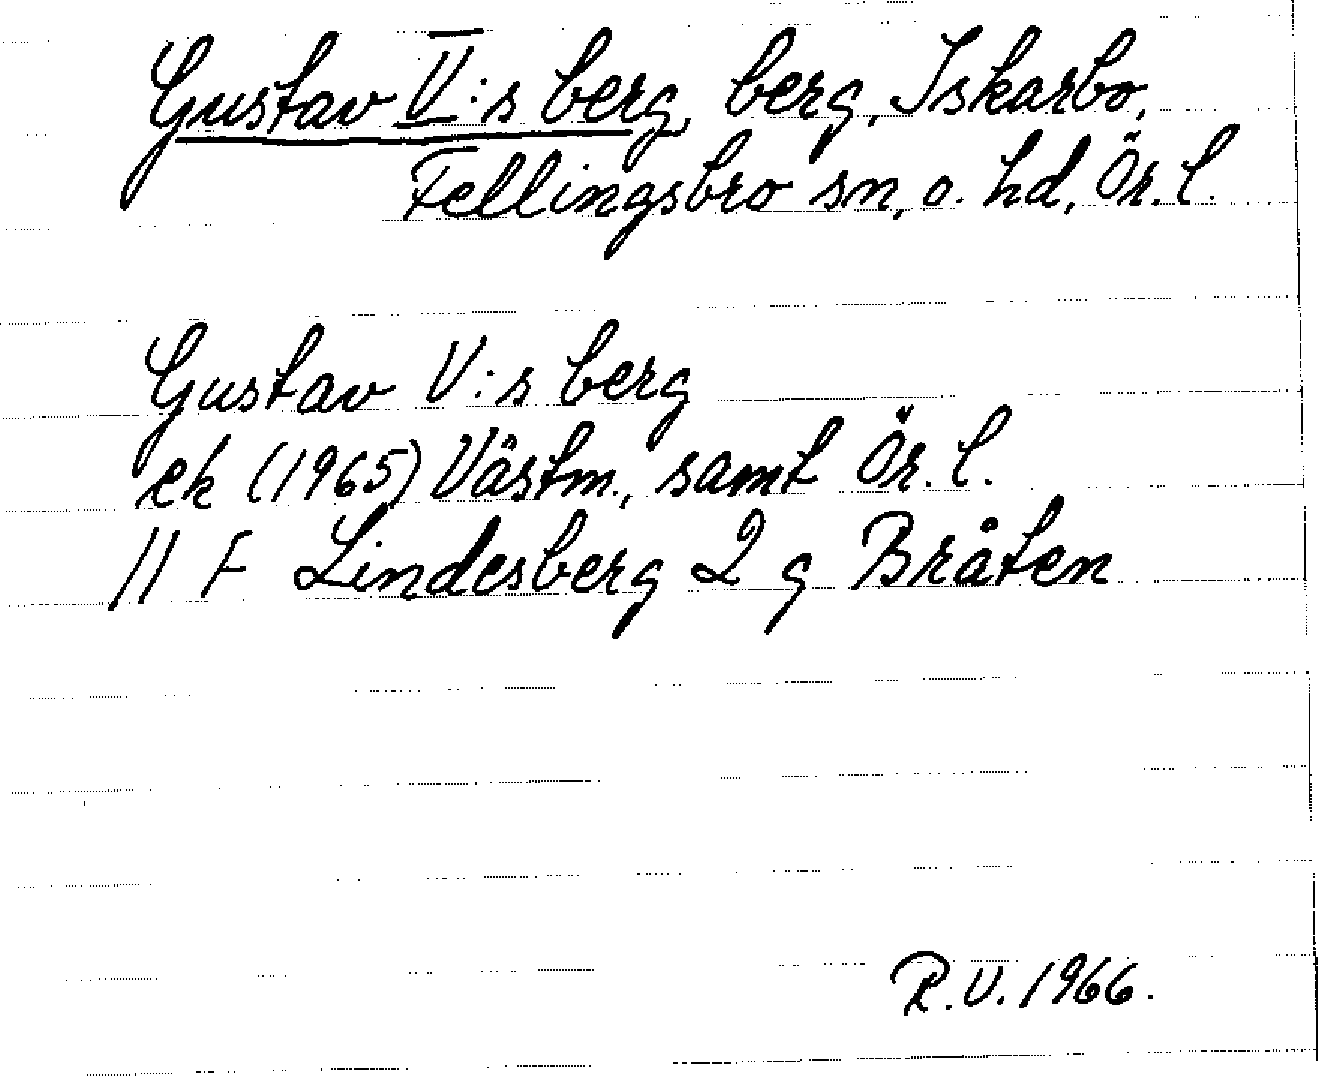 Gustav V:s berg, berg, Iskarbo,
Fellingsbro sn, o. hd, Ör. l.
Gustav V:s berg
ek (1965) Västm., samt Ör. l.
11 F Lindesberg 2 g Bråten
R.V. 1966.